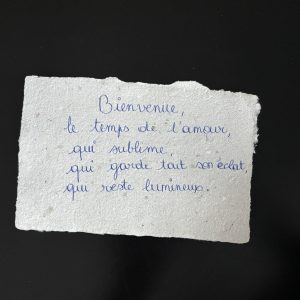 Bienvenue,
le temps de l'amour,
qui sublime,
qui garde tout son éclat,
qui reste lumineux.